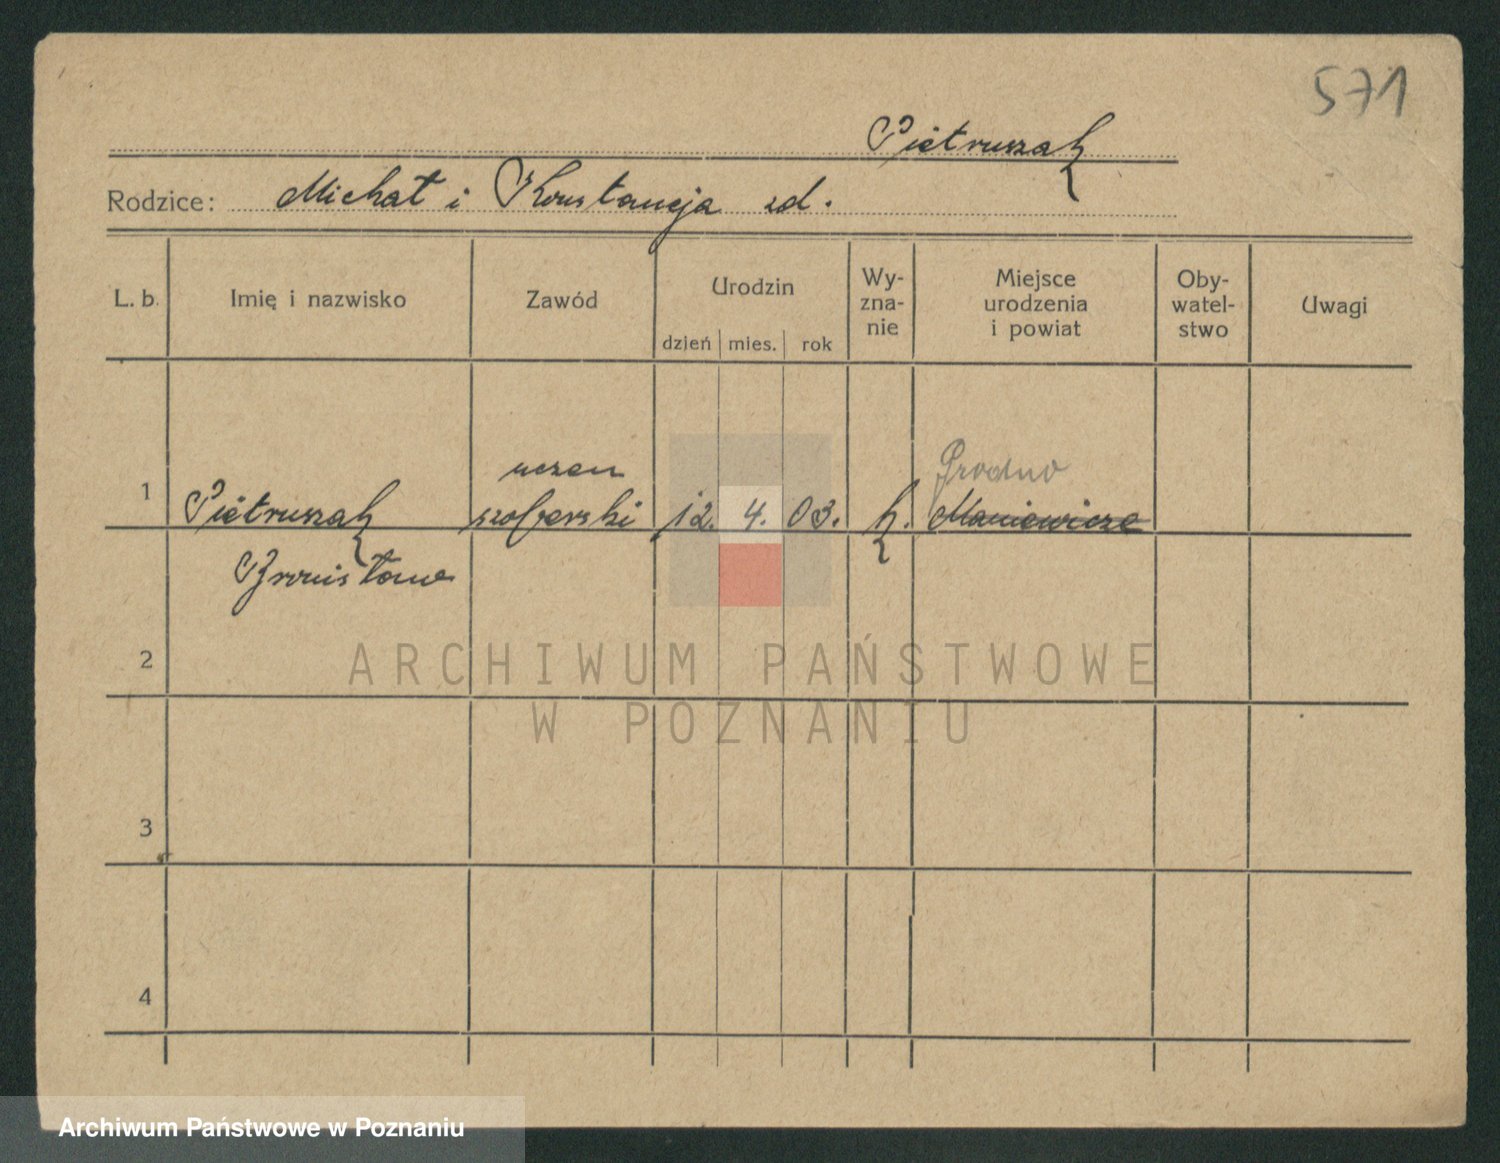 571
Pietruszak
Rodzice: Michał i Konstancja zd.
L. b. Imię i nazwisko Zawód Urodzin dzień mies. rok Wy-zna-nie Miejsce urodzenia i powiat Oby-watel-stwo Uwagi
uczen
1 Pietruszak szoferski 12. 4. 03. k. Maniewicze
Bronisława
2
ARCHIWUM PAŃSTWOWE
W POZNANIU
3
4
Archiwum Państwowe w Poznaniu